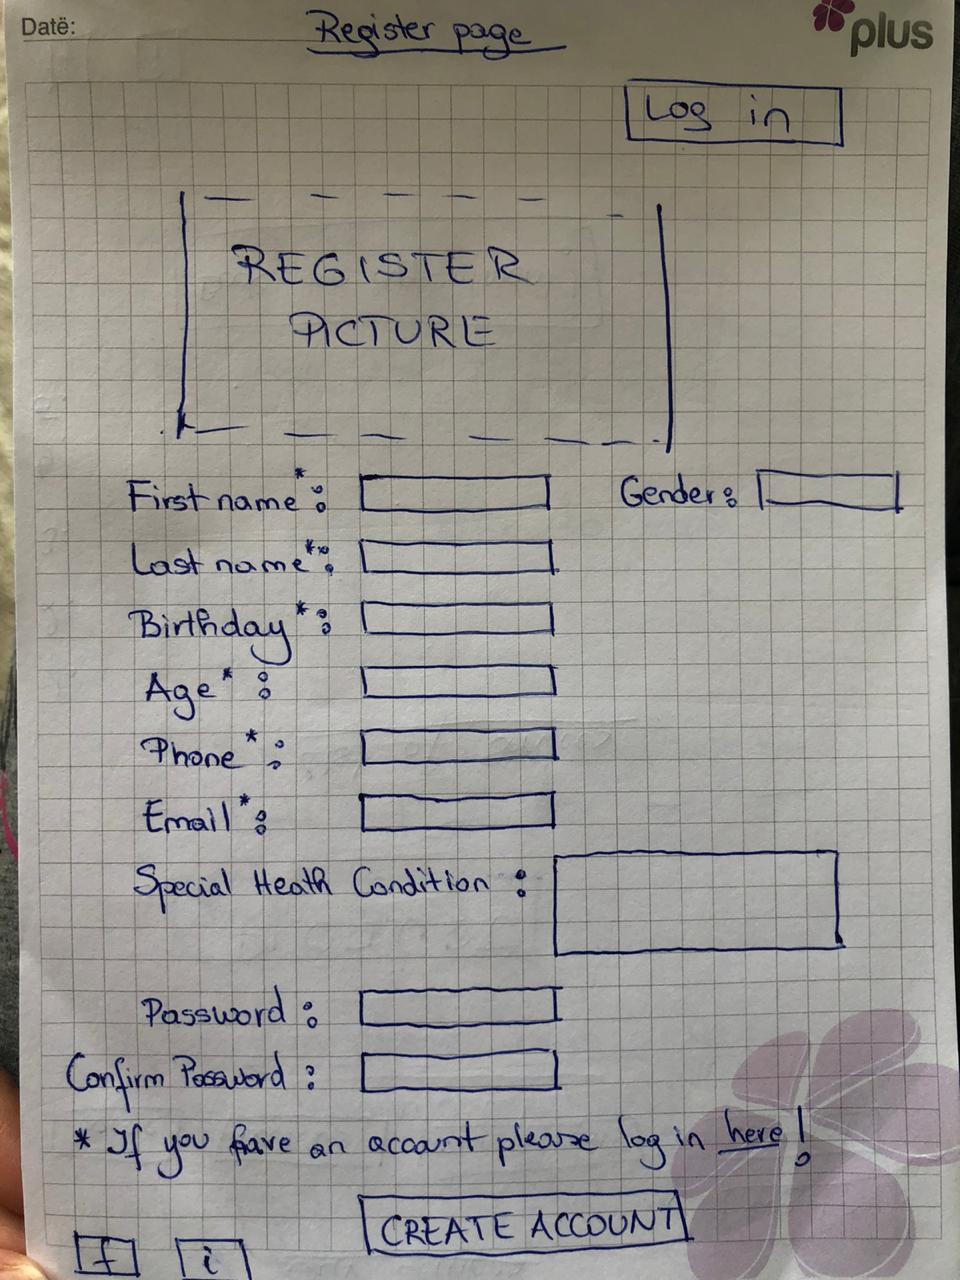 Datë:
Register page
plus
Log in
REGISTER
PICTURE
First name*:
Gender:
Last name*:
Birthday*:
Age*:
Phone*:
Email*:
Special Heath Condition:
Password:
Confirm Password:
* If you have an account please log in here!
CREATE ACCOUNT
f i